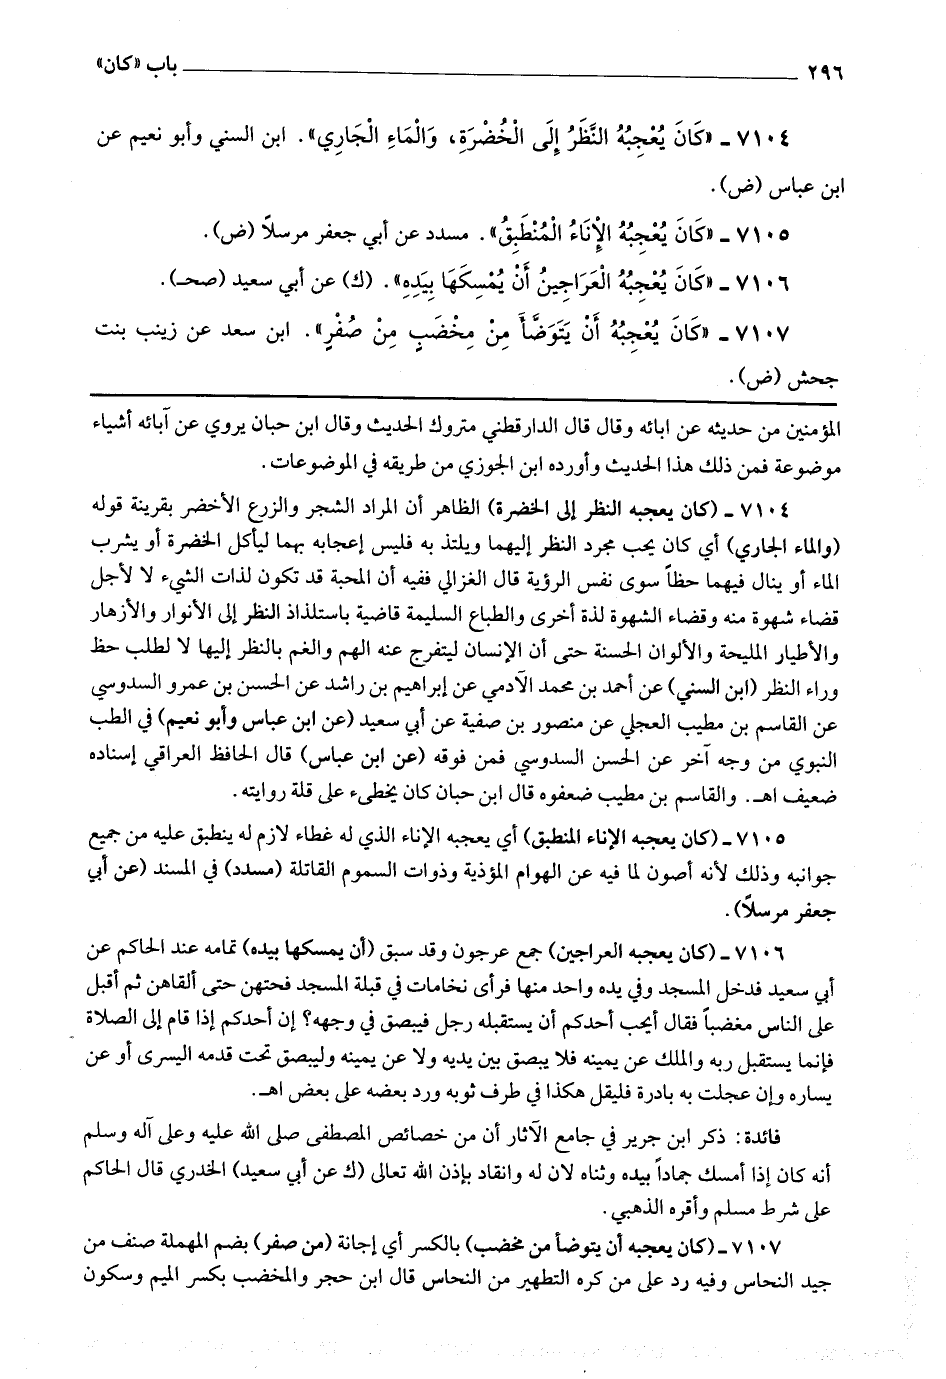 ٢٩٦ ــــــ باب «كان»
٧١٠٤ ـ «كَانَ يُعْجِبُهُ النَّظَرُ إِلَى الْخُضْرَةِ، وَالْمَاءِ الْجَارِي». ابن السني وأبو نعيم عن
ابن عباس (ض).
٧١٠٥ ـ «كَانَ يُعْجِبُهُ الإِنَاءُ الْمُنْطَبِقُ». مسدد عن أبي جعفر مرسلاً (ض).
٧١٠٦ ـ «كَانَ يُعْجِبُهُ الْعَرَاجِينُ أَنْ يُمْسِكَهَا بِيَدِهِ». (ك) عن أبي سعيد (صحـ).
٧١٠٧ ـ «كَانَ يُعْجِبُهُ أَنْ يَتَوَضَّأَ مِنْ مِخْضَبٍ مِنْ صُفْرٍ». ابن سعد عن زينب بنت
جحش (ض).
المؤمنين من حديثه عن ابائه وقال قال الدارقطني متروك الحديث وقال ابن حبان يروي عن آبائه أشياء
موضوعة فمن ذلك هذا الحديث وأورده ابن الجوزي من طريقه في الموضوعات.
٧١٠٤ ـ (كان يعجبه النظر إلى الخضرة) الظاهر أن المراد الشجر والزرع الأخضر بقرينة قوله
(والماء الجاري) أي كان يحب مجرد النظر إليهما ويلتذ به فليس إعجابه بهما ليأكل الخضرة أو يشرب
الماء أو ينال فيهما حظاً سوى نفس الرؤية قال الغزالي ففيه أن المحبة قد تكون لذات الشيء لا لأجل
قضاء شهوة منه وقضاء الشهوة لذة أخرى والطباع السليمة قاضية باستلذاذ النظر إلى الأنوار والأزهار
والأطيار المليحة والألوان الحسنة حتى أن الإنسان ليتفرج عنه الهم والغم بالنظر إليها لا لطلب حظ
وراء النظر (ابن السني) عن أحمد بن محمد الآدمي عن إبراهيم بن راشد عن الحسن بن عمرو السدوسي
عن القاسم بن مطيب العجلي عن منصور بن صفية عن أبي سعيد (عن ابن عباس وأبو نعيم) في الطب
النبوي من وجه آخر عن الحسن السدوسي فمن فوقه (عن ابن عباس) قال الحافظ العراقي إسناده
ضعيف اهـ. والقاسم بن مطيب ضعفوه قال ابن حبان كان يخطىء على قلة روايته.
٧١٠٥ ـ (كان يعجبه الإناء المنطبق) أي يعجبه الإناء الذي له غطاء لازم له ينطبق عليه من جميع
جوانبه وذلك لأنه أصون لما فيه عن الهوام المؤذية وذوات السموم القاتلة (مسدد) في المسند (عن أبي
جعفر مرسلاً).
٧١٠٦ ـ (كان يعجبه العراجين) جمع عرجون وقد سبق (أن يمسكها بيده) تمامه عند الحاكم عن
أبي سعيد فدخل المسجد وفي يده واحد منها فرأى نخامات في قبلة المسجد فحتهن حتى ألقاهن ثم أقبل
على الناس مغضباً فقال أيحب أحدكم أن يستقبله رجل فيبصق في وجهه؟ إن أحدكم إذا قام إلى الصلاة
فإنما يستقبل ربه والملك عن يمينه فلا يبصق بين يديه ولا عن يمينه وليبصق تحت قدمه اليسرى أو عن
يساره وإن عجلت به بادرة فليقل هكذا في طرف ثوبه ورد بعضه على بعض اهـ.
فائدة: ذكر ابن جرير في جامع الآثار أن من خصائص المصطفى صلى الله عليه وعلى آله وسلم
أنه كان إذا أمسك جماداً بيده وثناه لان له وانقاد بإذن الله تعالى (ك عن أبي سعيد) الخدري قال الحاكم
على شرط مسلم وأقره الذهبي.
٧١٠٧ ـ (كان يعجبه أن يتوضأ من مخضب) بالكسر أي إجانة (من صفر) بضم المهملة صنف من
جيد النحاس وفيه رد على من كره التطهير من النحاس قال ابن حجر والمخضب بكسر الميم وسكون